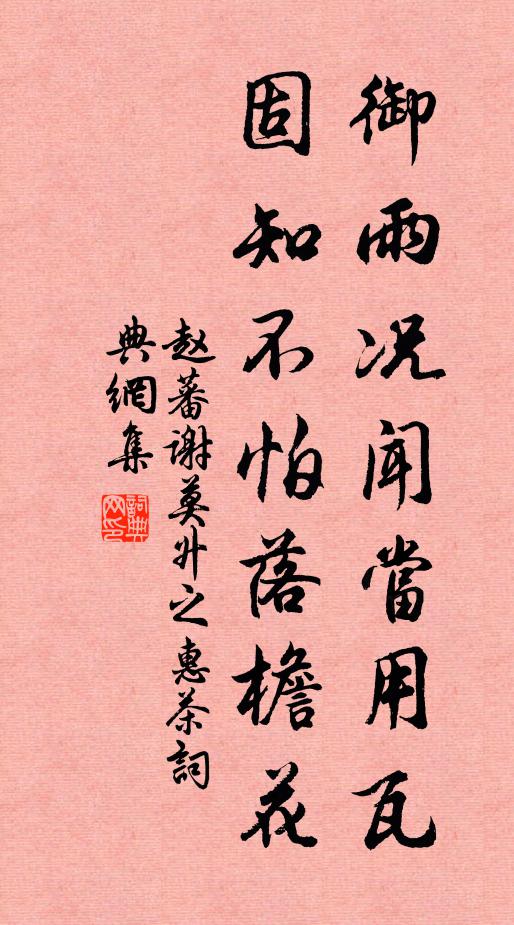 御雨况闻當用瓦
固知不怕落檐花
赵蕃谢莫升之惠茶詞
典網集
詞典网印